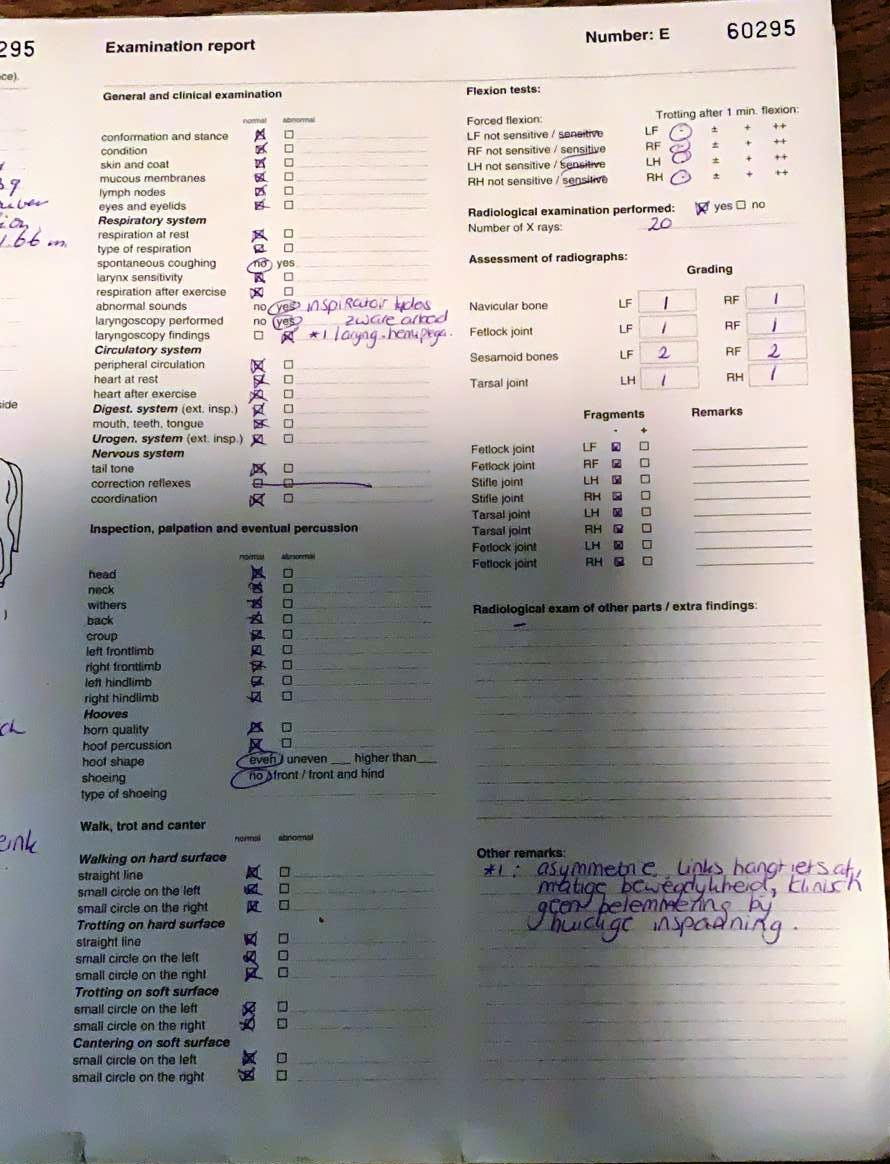 295
Examination report
Number: E 60295
ce).
General and clinical examination
normal abnormal
conformation and stance
condition
skin and coat
mucous membranes
lymph nodes
eyes and eyelids
Respiratory system
respiration at rest
type of respiration
spontaneous coughing no yes
larynx sensitivity
respiration after exercise
abnormal sounds no yes inspirator tydes
laryngoscopy performed no yes zware arbeid
laryngoscopy findings *1 laryng. hemiplega.
Circulatory system
peripheral circulation
heart at rest
heart after exercise
Digest. system (ext. insp.)
mouth, teeth, tongue
Urogen. system (ext. insp.)
Nervous system
tail tone
correction reflexes
coordination
Inspection, palpation and eventual percussion
normal abnormal
head
neck
withers
back
croup
left frontlimb
right frontlimb
left hindlimb
right hindlimb
Hooves
horn quality
hoof percussion
hoof shape even / uneven ___ higher than___
shoeing no / front / front and hind
type of shoeing
Walk, trot and canter
normal abnormal
Walking on hard surface
straight line
small circle on the left
small circle on the right
Trotting on hard surface
straight line
small circle on the left
small circle on the right
Trotting on soft surface
small circle on the left
small circle on the right
Cantering on soft surface
small circle on the left
small circle on the right
1.66 m.
ide
Flexion tests:
Forced flexion: Trotting after 1 min. flexion:
LF not sensitive / sensitive LF - ± + ++
RF not sensitive / sensitive RF - ± + ++
LH not sensitive / sensitive LH - ± + ++
RH not sensitive / sensitive RH - ± + ++
Radiological examination performed: yes no
Number of X rays: 20
Assessment of radiographs:
Grading
Navicular bone LF 1 RF 1
Fetlock joint LF 1 RF 1
Sesamoid bones LF 2 RF 2
Tarsal joint LH 1 RH 1
Fragments Remarks
- +
Fetlock joint LF
Fetlock joint RF
Stifle joint LH
Stifle joint RH
Tarsal joint LH
Tarsal joint RH
Fetlock joint LH
Fetlock joint RH
Radiological exam of other parts / extra findings:
-
Other remarks:
*1: asymmetrie, links hangt iets af,
matige beweeglijkheid, klinisch
geen belemmering bij
huidige inspanning.